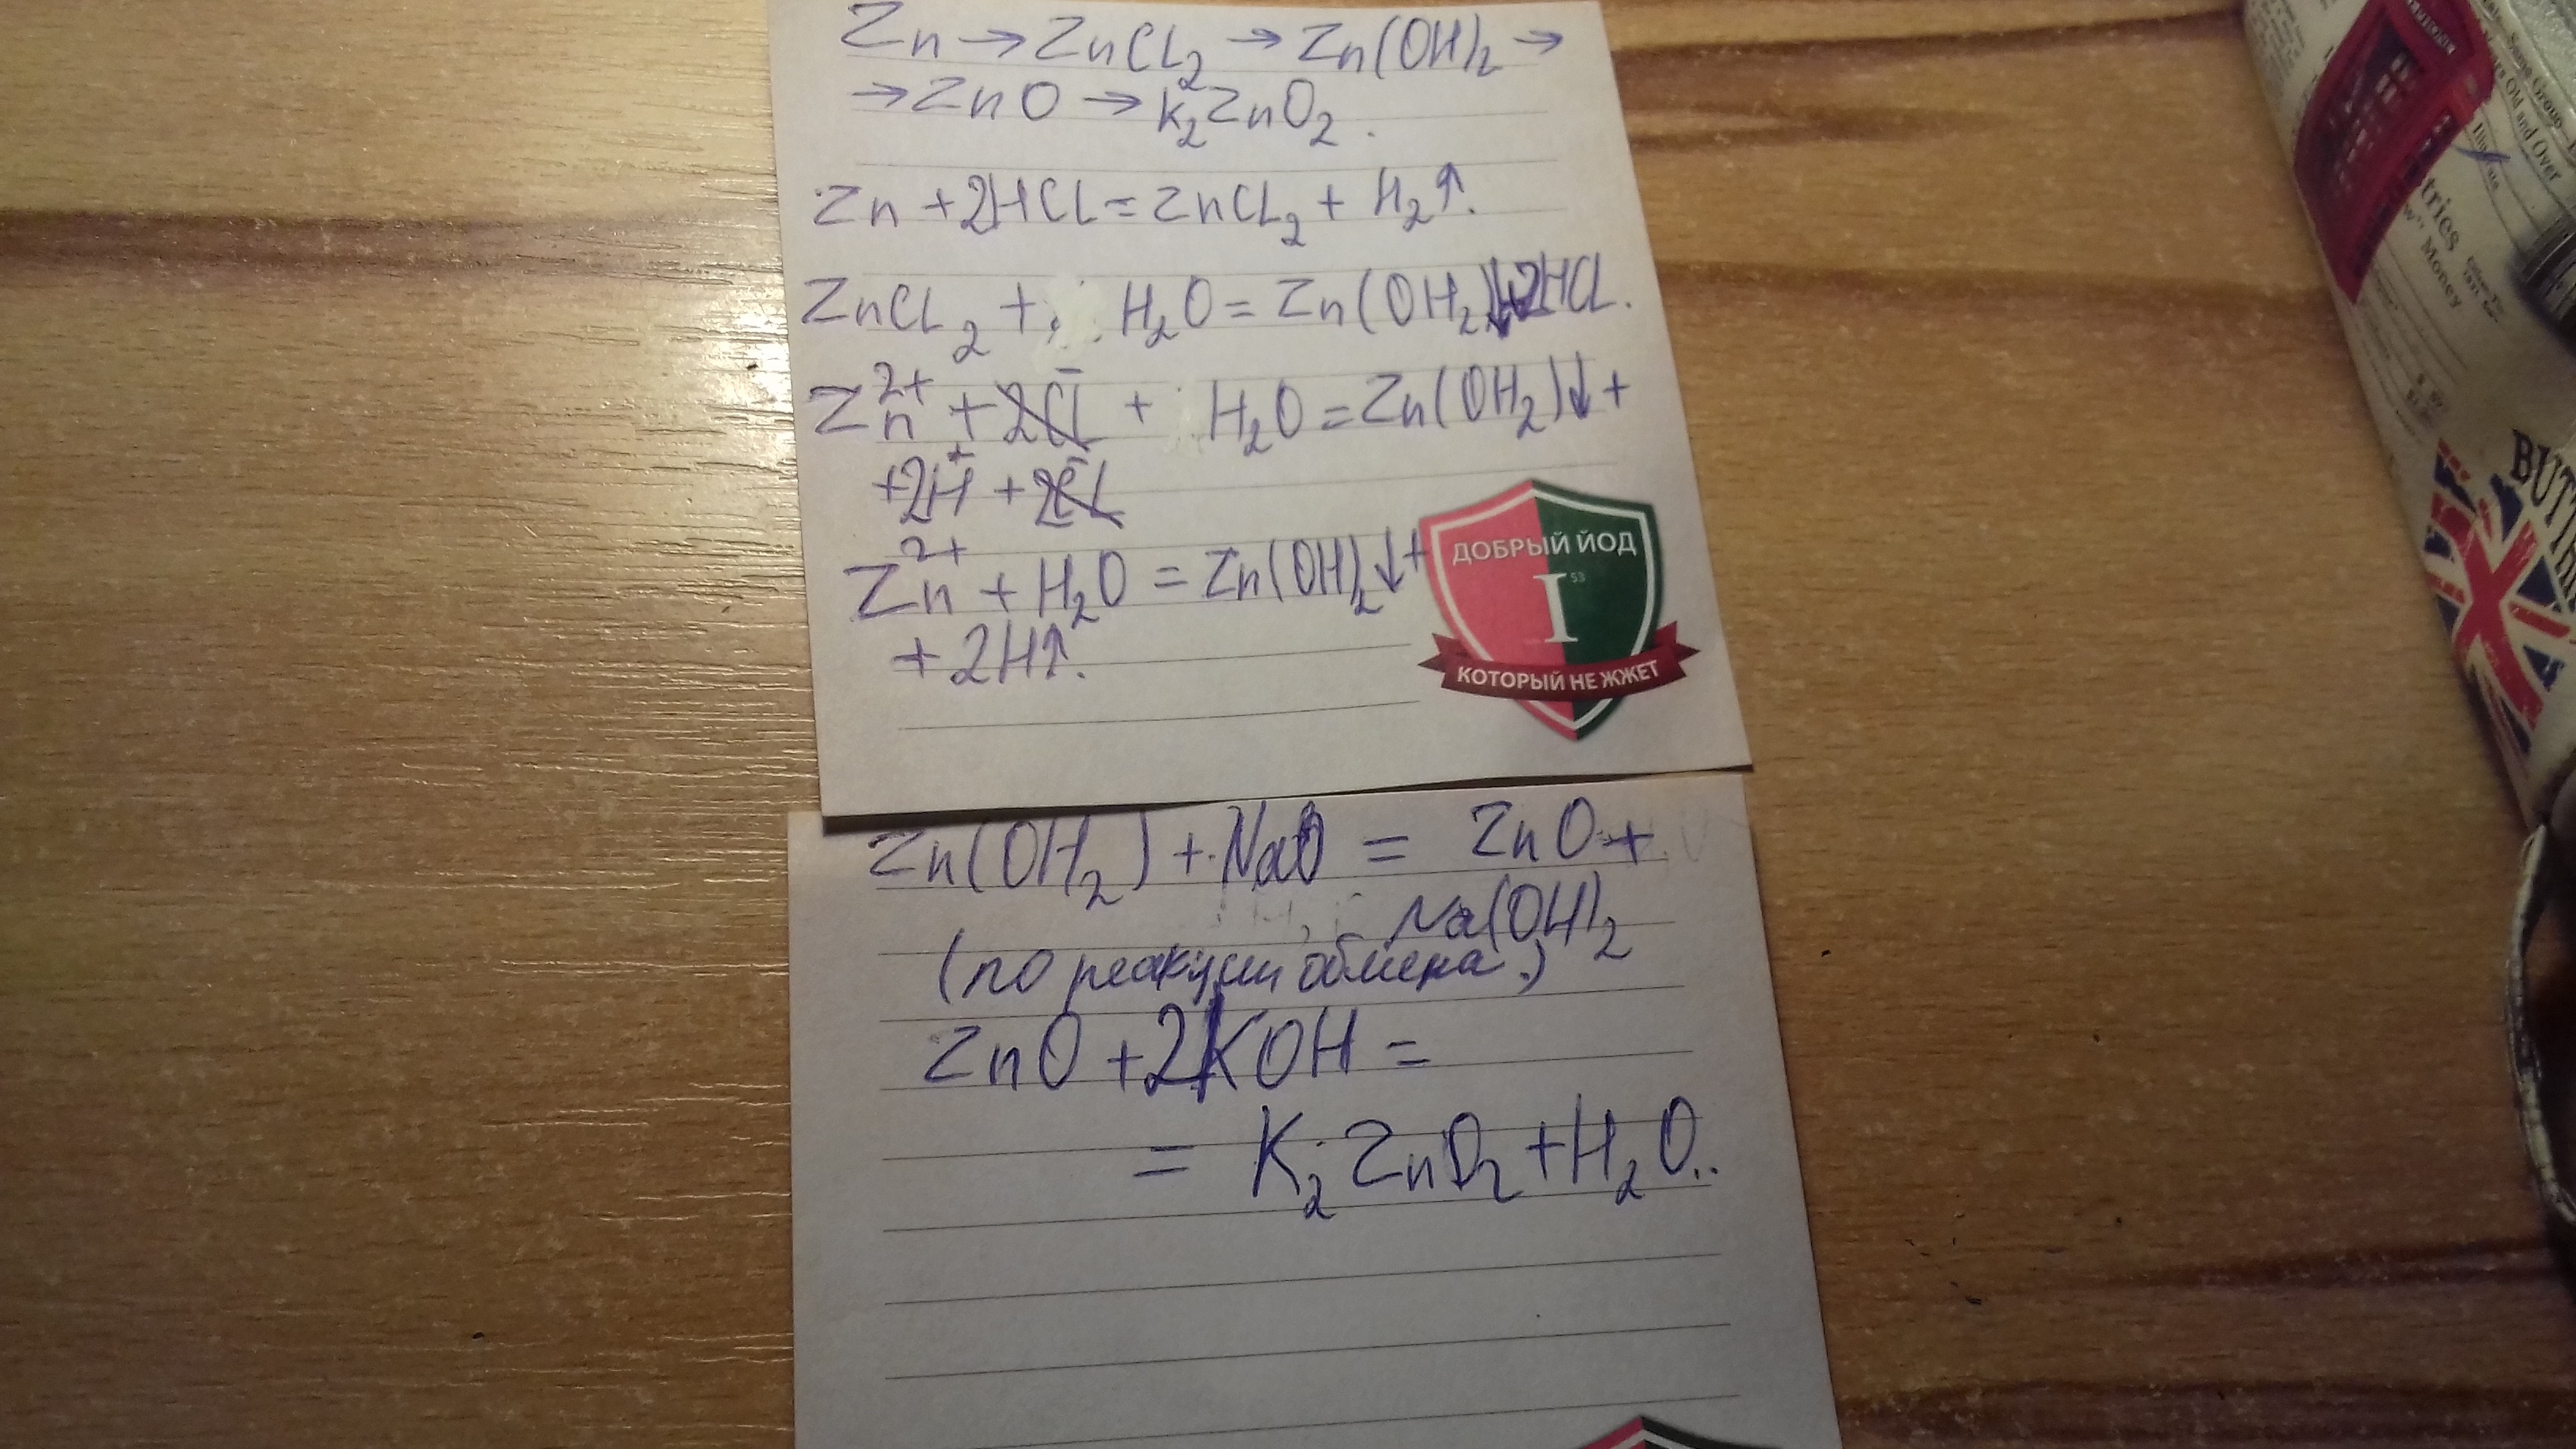 Zn → ZnCl₂ → Zn(OH)₂ →
→ ZnO → K₂ZnO₂.
Zn + 2HCl = ZnCl₂ + H₂↑.
ZnCl₂ + H₂O = Zn(OH₂)↓+2HCl.
Zn²⁺ + 2Cl⁻ + H₂O = Zn(OH₂)↓ +
+ 2H⁺ + 2Cl⁻
Zn²⁺ + H₂O = Zn(OH)₂↓ +
+ 2H↑.
ДОБРЫЙ ЙОД
I 53
КОТОРЫЙ НЕ ЖЖЕТ
Zn(OH₂) + NaO = ZnO +
Na(OH)₂
(по реакции обмена.)
ZnO + 2KOH =
= K₂ZnO₂ + H₂O.
Old and Over
tries
Money